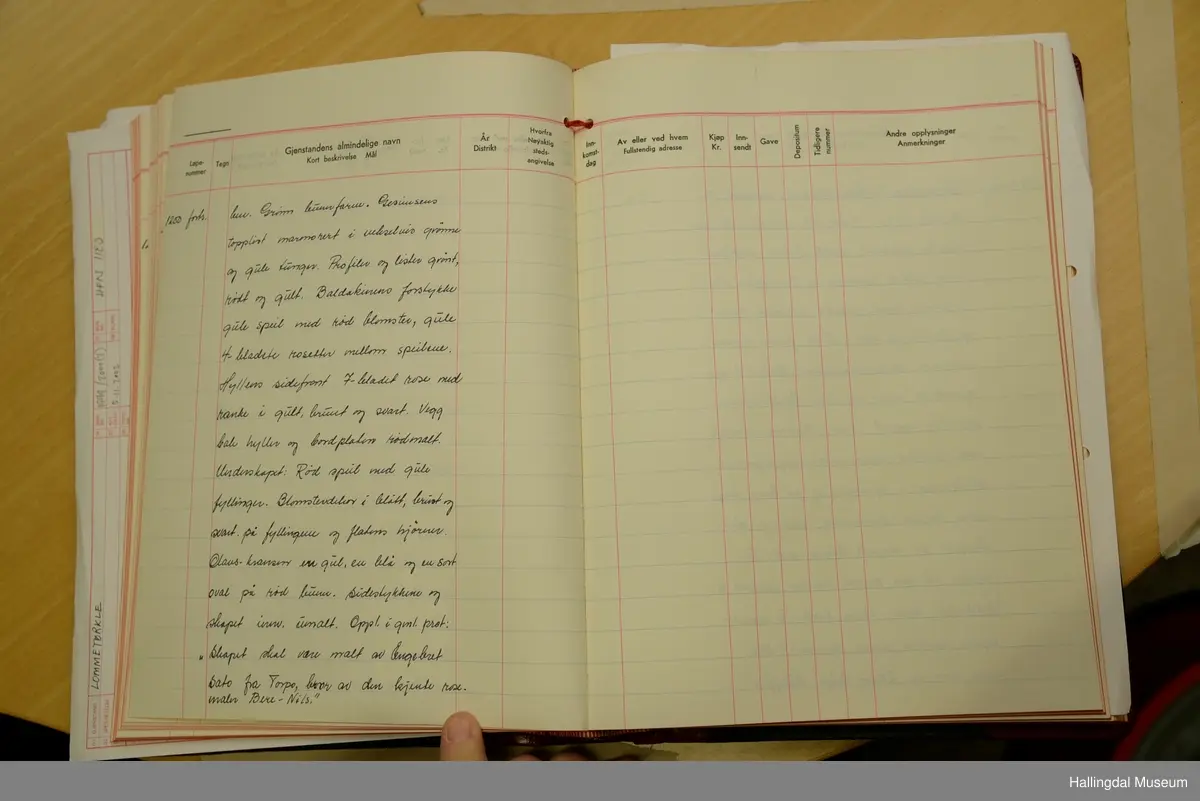 Løpe-
nummer
Tegn
Gjenstandens almindelige navn
Kort beskrivelse Mål
År
Distrikt
Hvorfra
Nøyaktig
steds-
angivelse
Inn-
komst-
dag
Av eller ved hvem
Fullstendig adresse
Kjøp
Kr.
Inn-
sendt
Gave
Depositum
Tidligere
nummer
Andre opplysninger
Anmerkninger
1200 forts.
Grønn bunnfarve. Gesimsens
topplist marmorert i vekselvis grønne
og gule tunger. Profiler og lister grønt,
rødt og gult. Baldakinens forstykke
gule speil med rød blomster, gule
4-bladete rosetter mellom speilene.
Hyllens sidefront 7-bladet rose med
ranke i gult, brunt og svart. Vegg
bak hyller og bordplaten rødmalt.
Underskapet: Rød speil med gule
fyllinger. Blomsterdekor i blått, brunt og
svart på fyllingene og flatens hjørner.
Olaus-kransen en gul, en blå og en sort
oval på rød bunn. Sidestykkene og
skapet innv. umalt. Oppl. i gml. prot:
"Skapet skal være malt av Engebret
Sato fra Torpo, bror av den kjente rose-
maler Bere-Nils."
LOMMETØRKLE
Hallingdal Museum